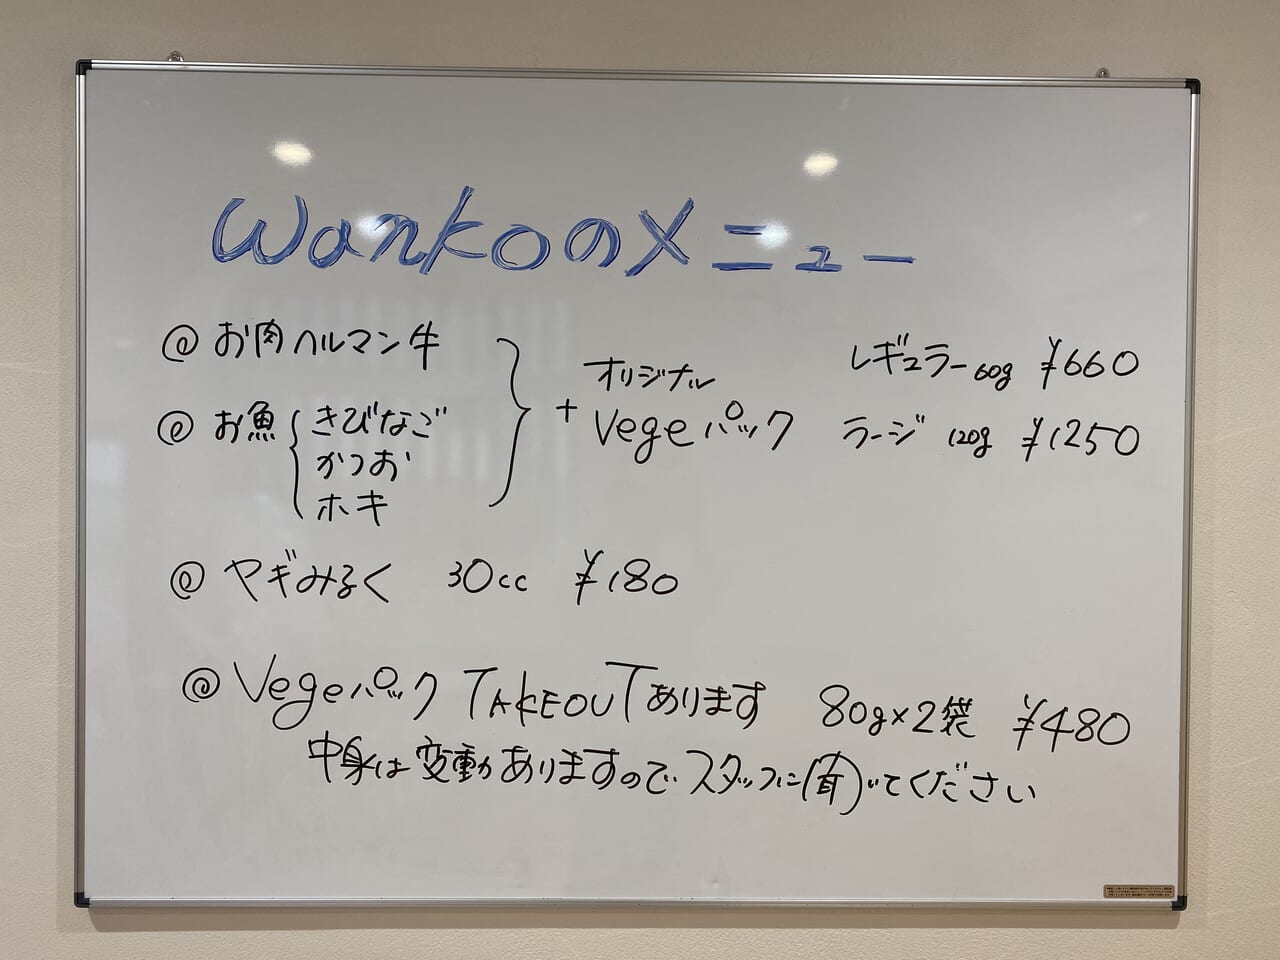 Wankoのメニュー
@ お肉 ヘルマン牛
@ お魚 { きびなご
かつお
ホキ
} + オリジナル
Vegeパック
レギュラー 60g ¥660
ラージ 120g ¥1250
@ ヤギみるく 30cc ¥180
@ Vegeパック TAKEOUTあります 80g×2袋 ¥480
中身は変動ありますのでスタッフに聞いてください